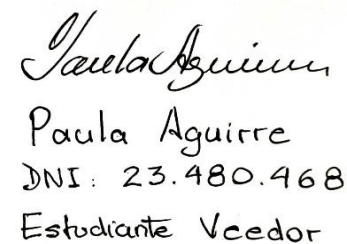 Paula Aguirre
Paula Aguirre
DNI: 23.480.468
Estudiante Veedor